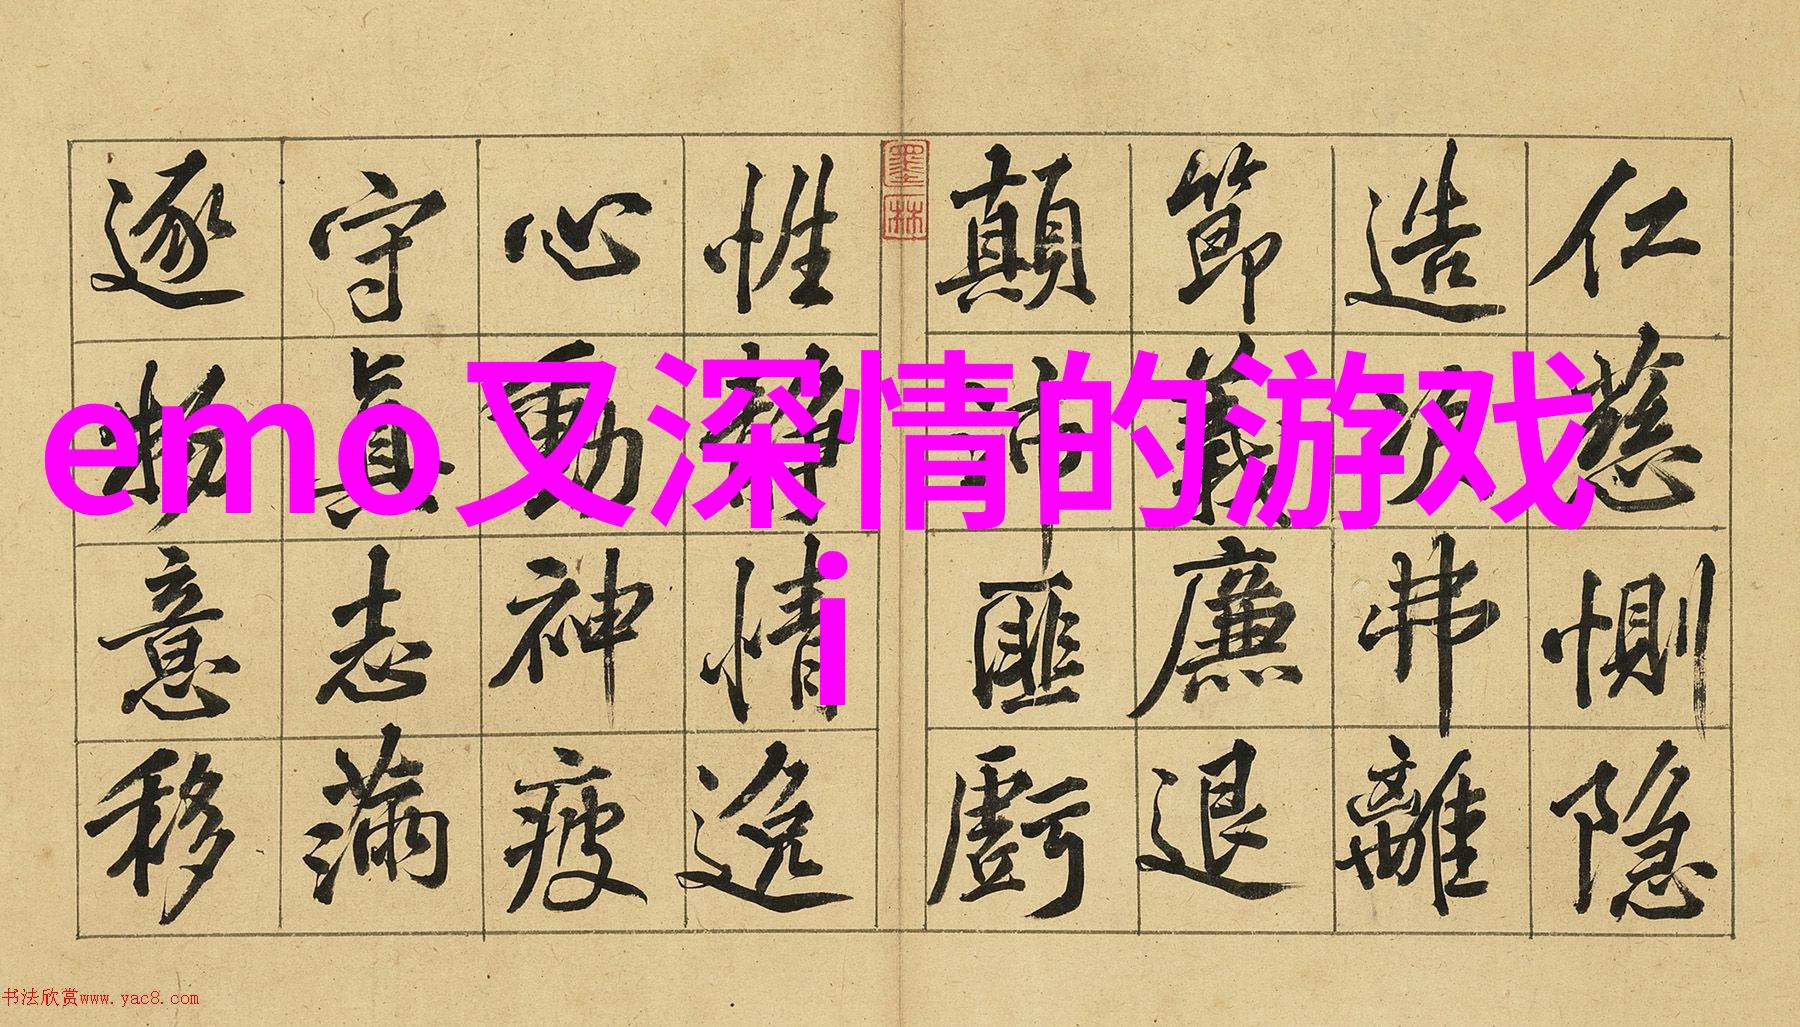 emo又深情的游戏
i
仁慈惻隐
造次弗離
節義廉退
顛沛匪虧
性静情逸
心動神疲
守真志滿
逐物意移
墨林
书法欣赏www.yac8.com